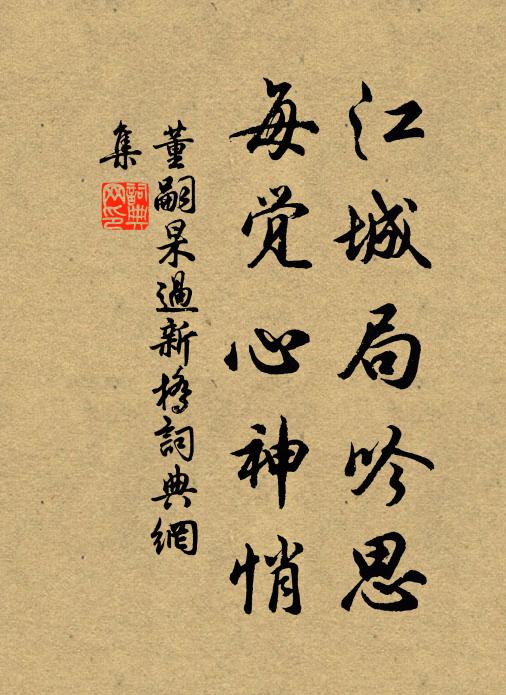 江城局吟思
每觉心神悄
董嗣杲過新橋詞典網
集
詞典
网印